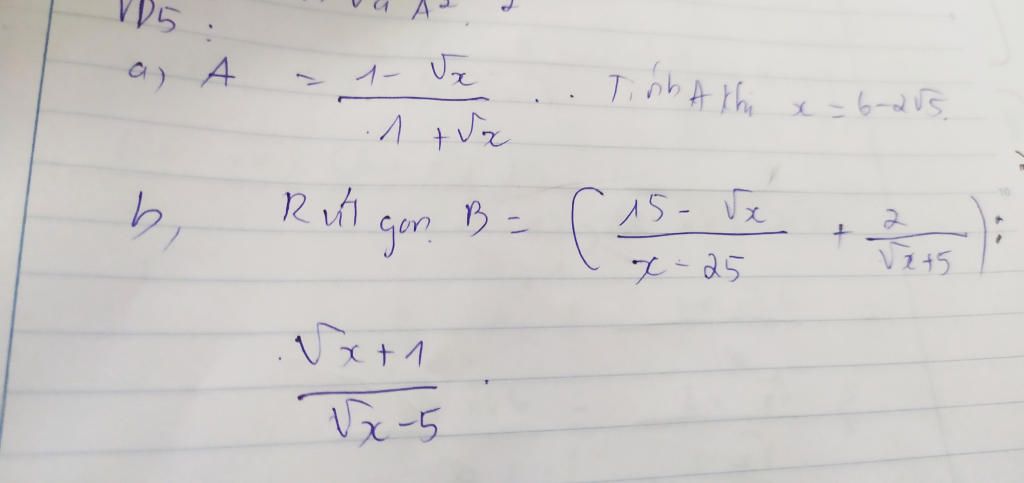 VD5:
a, A = \frac{1 - \sqrt{x}}{1 + \sqrt{x}} . . Tính A khi x = 6 - 2\sqrt{5}.
b, Rút gọn B = \left( \frac{15 - \sqrt{x}}{x - 25} + \frac{2}{\sqrt{x} + 5} \right) :
\frac{\sqrt{x} + 1}{\sqrt{x} - 5} .